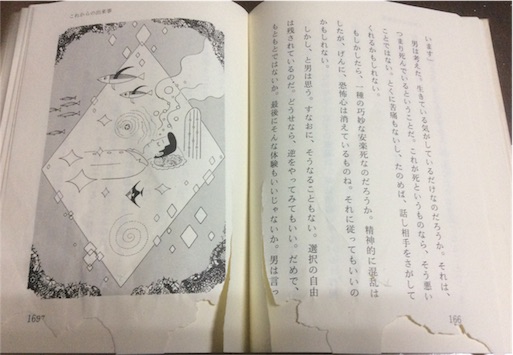 います」
男は考えた。生きている気がしているだけなのだろうか。それは、
つまり死んでいるということだ。これが死というものなら、そう悪い
ことではない。とくに苦痛もないし、たのめば、話し相手をさがして
くれるかもしれない。
もしかしたら、一種の巧妙な安楽死なのだろうか。精神的に混乱は
したが、げんに、恐怖心は消えているものね。それに従ってもいいの
かもしれない。
しかし、と男は思う。すなおに、そうなることもない。選択の自由
は残されているのだ。どうせなら、逆をやってみてもいい。だめで、
もともとではないか。最後にそんな体験もいいじゃないか。男は言っ
166
これからの出来事
169